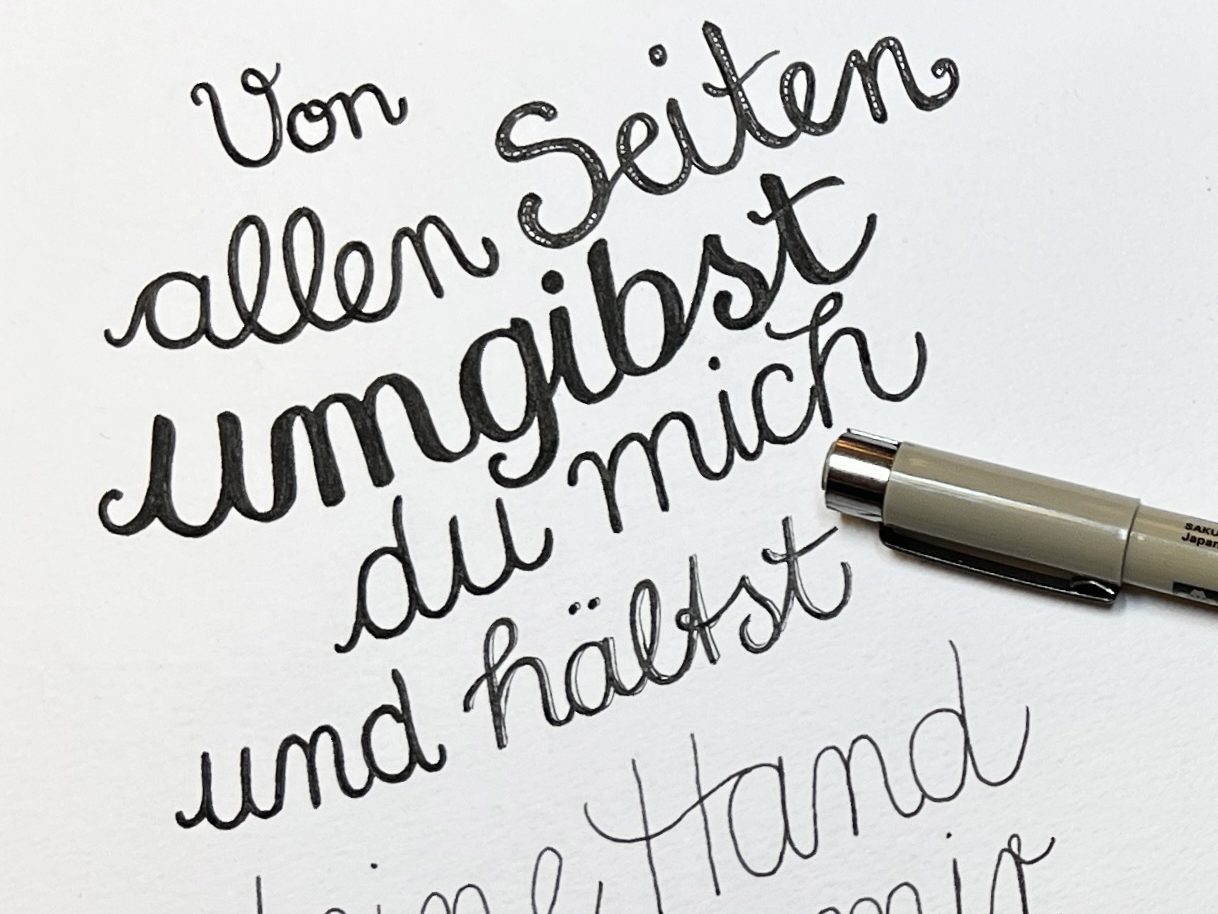 Von
allen Seiten
umgibst
du mich
und hältst
deine Hand
mir
SAKU
Japan